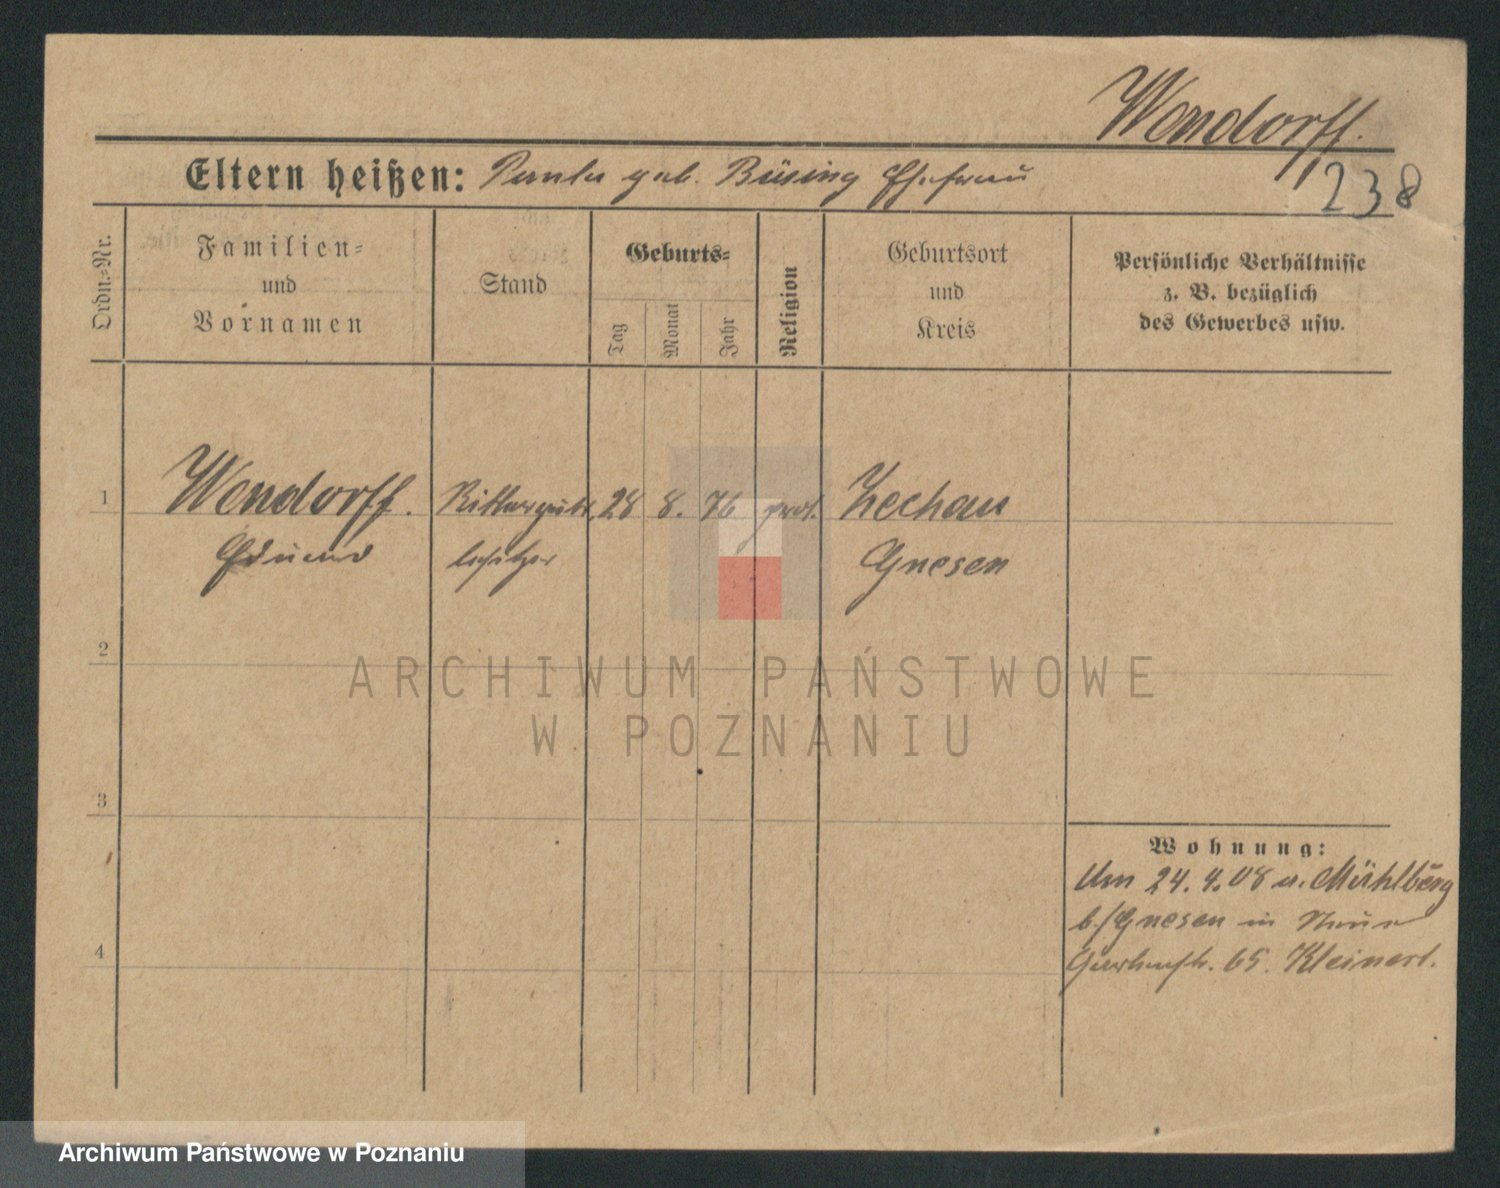 Wendorff.
238
Eltern heißen: Paula geb. Büsing Ehefrau
Ordn.=Nr.
Familien=
und
Vornamen
Stand
Geburts=
Tag
Monat
Jahr
Religion
Geburtsort
und
Kreis
Persönliche Verhältnisse
z. B. bezüglich
des Gewerbes usw.
1 Wendorff. Ritterguts 28 8. 76 prot. Zechau
Eduard besitzer Gnesen
2
ARCHIWUM PAŃSTWOWE
W POZNANIU
3
Wohnung:
Um 24.4.08 a. Mühlberg
b/Gnesen in Neue
4
Gartenstr. 65. Kleinert.
Archiwum Państwowe w Poznaniu